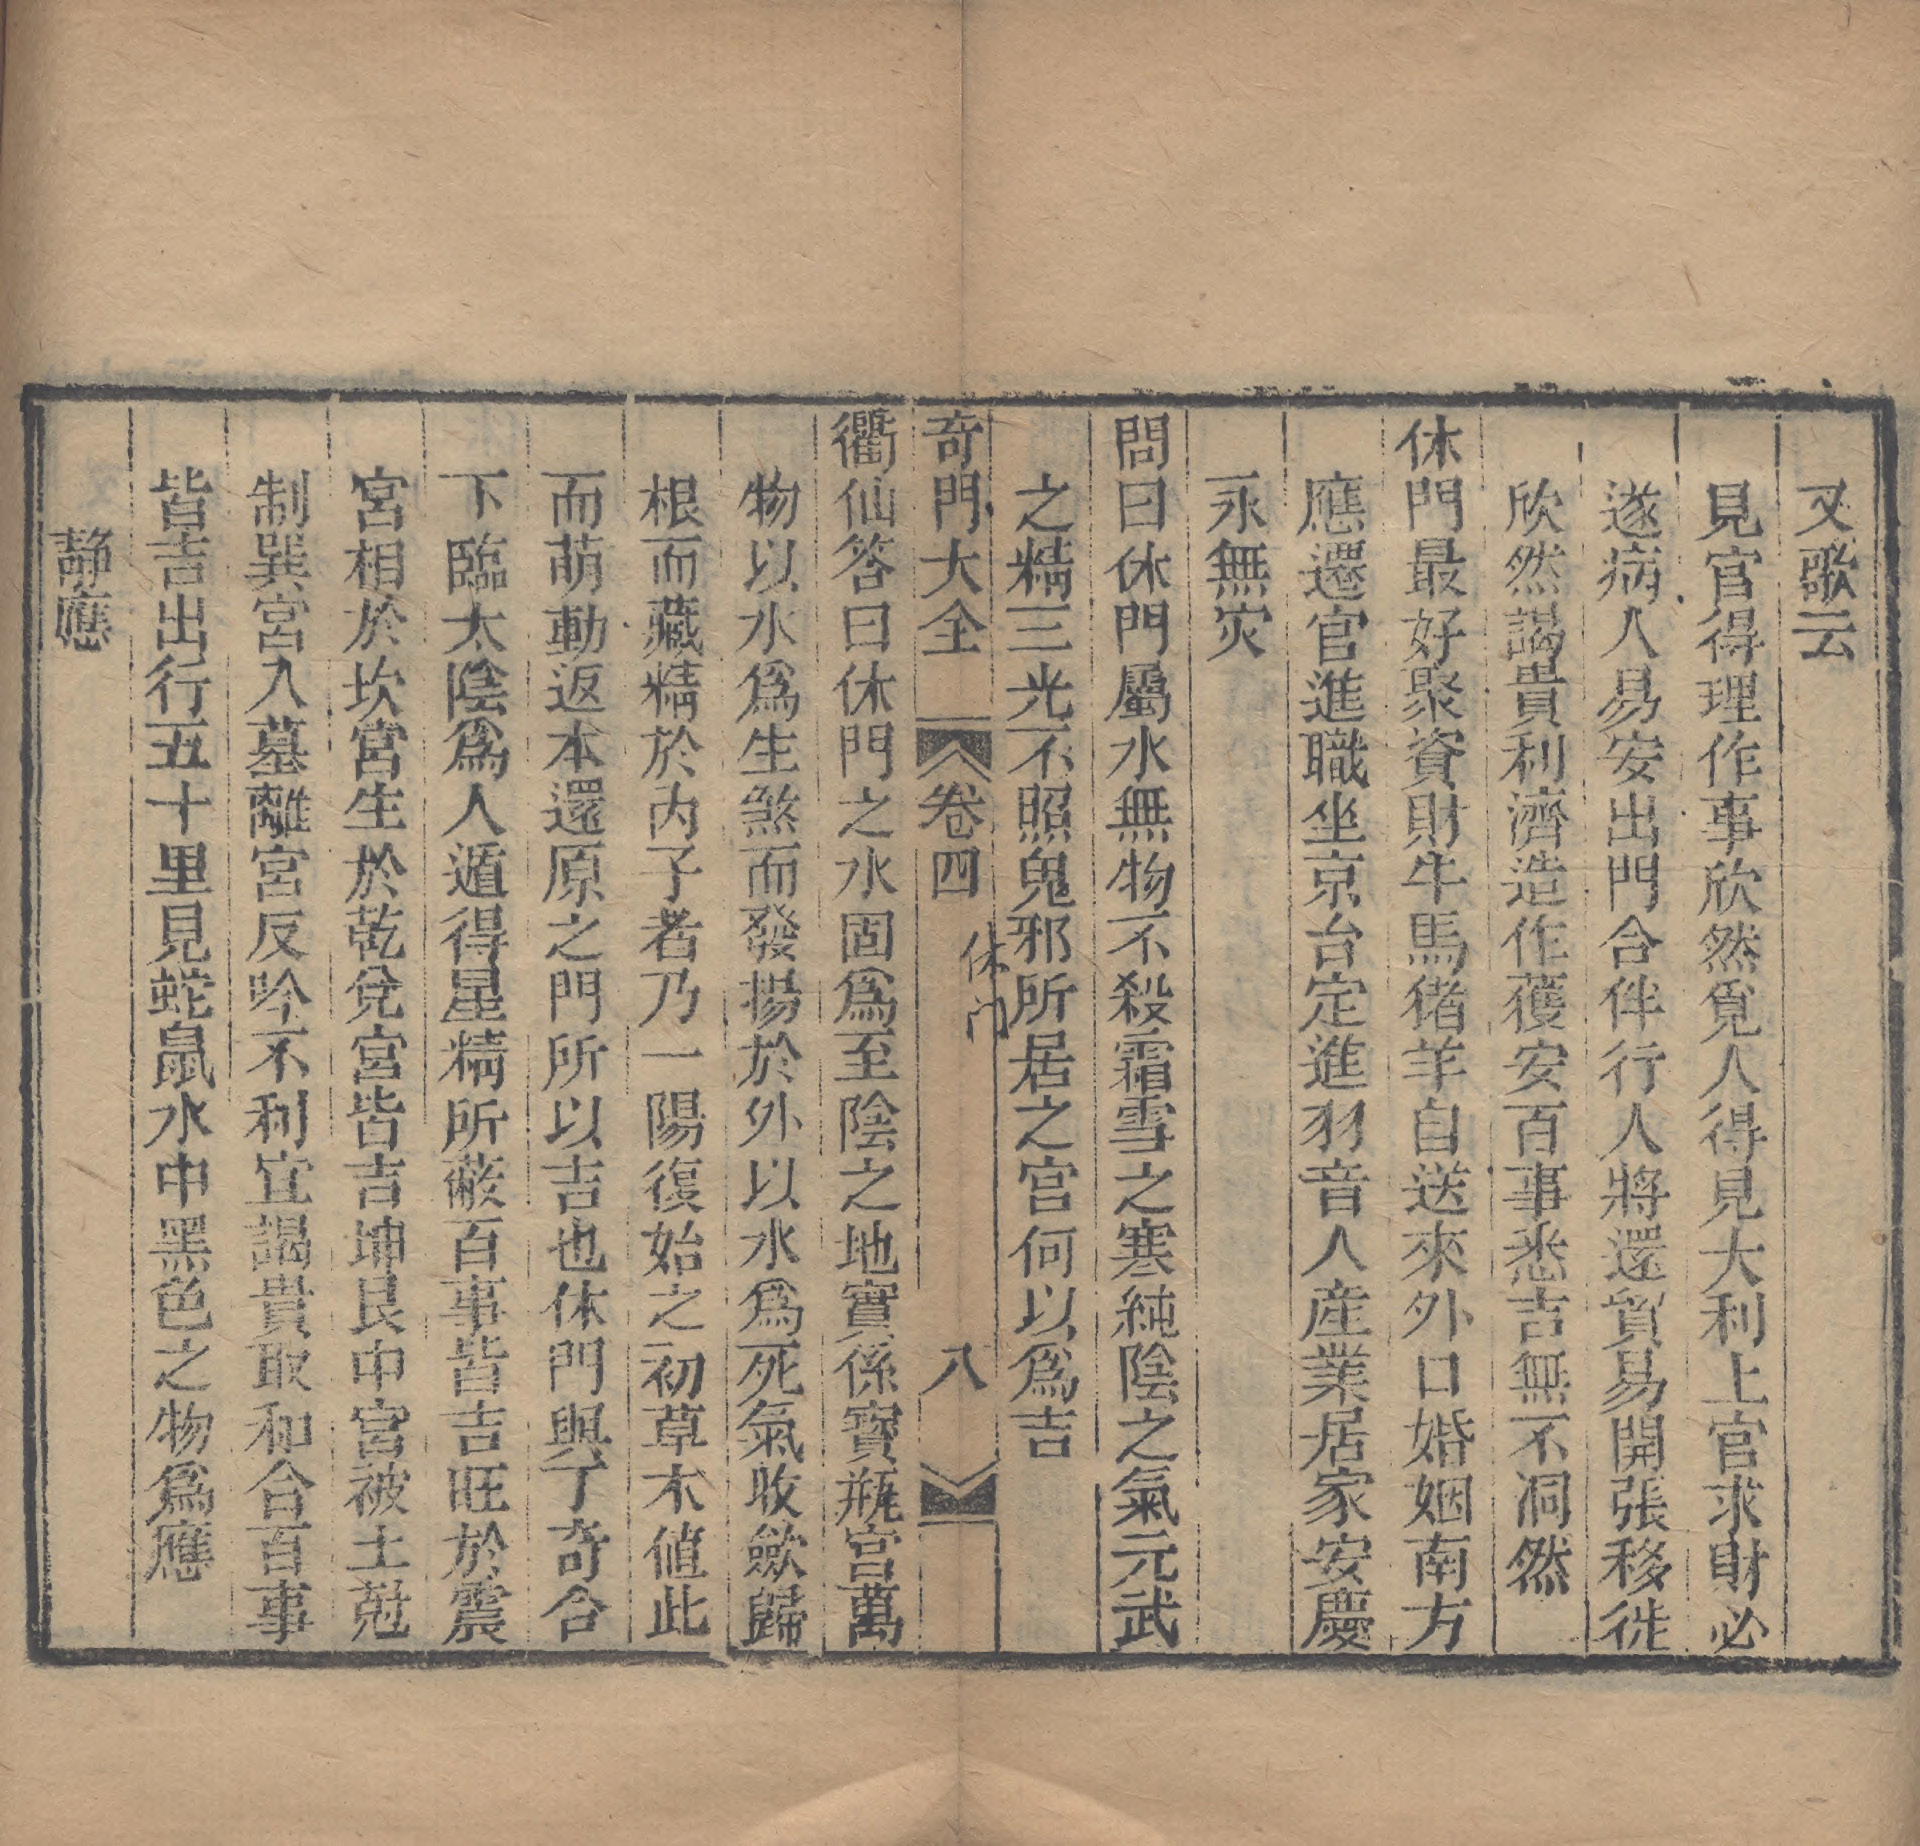 又歌云
見官得理作事欣然覓人得見大利上官求財必
遂病人易安出門合伴行人將還貿易開張移徙
欣然謁貴利濟造作獲安百事悉吉無不洞然
休門最好聚資財牛馬猪羊自送來外口婚姻南方
應還官進職坐京台定進羽音人産業居家安慶
永無灾
問曰休門屬水無物不殺霜雪之寒純陰之氣元武
之精三光不照鬼邪所居之宮何以爲吉
奇門大全 卷四 休门 八
衢仙答曰休門之水固爲至陰之地實係寶瓶宮萬
物以水爲生煞而發揚於外以水爲死氣收歛歸
根而藏精於內子者乃一陽復始之初草木值此
而萌動返本還原之門所以吉也休門與丁奇合
下臨太陰爲人遁得星精所蔽百事皆吉旺於震
宮相於坎宮生於乾兌宮皆吉坤艮中宮被土尅
制巽宮入墓離宮反吟不利宜謁貴取和合百事
皆吉出行五十里見蛇鼠水中黑色之物爲應
静應